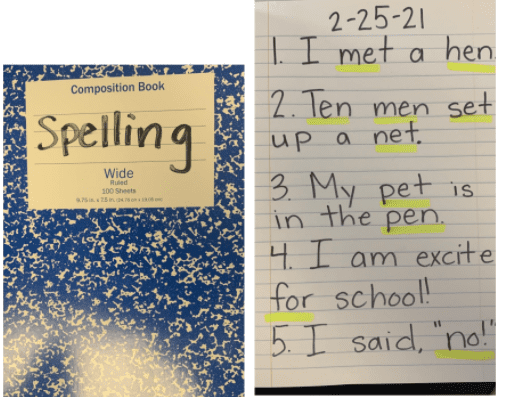 Composition Book
Spelling
Wide
Ruled
100 Sheets
9.75 in. x 7.5 in. (24.76 cm x 19.05 cm)
2-25-21
1. I met a hen
2. Ten men set
up a net.
3. My pet is
in the pen.
4. I am excite
for school!
5. I said, "no!"